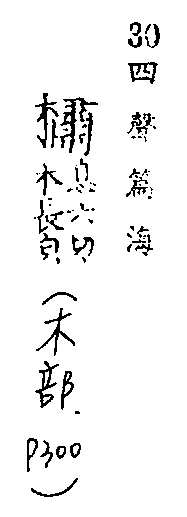 30四聲篇海
橚息六切木長皃(木部.P300)